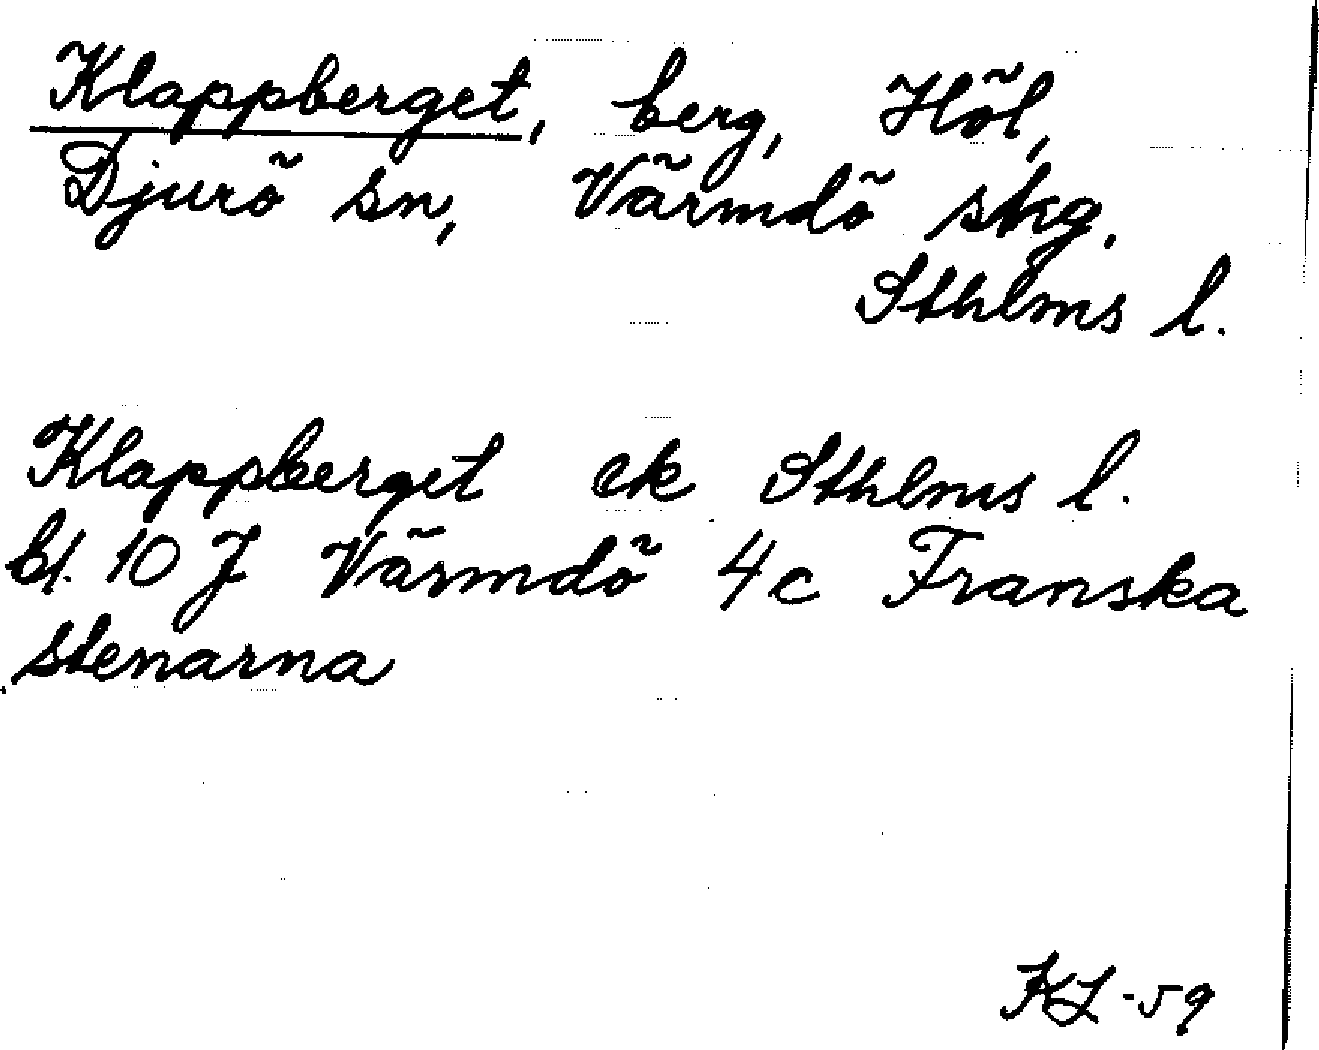 Klappberget, berg, Höl,
Djurö sn, Värmdö skg.
Sthlms l.
Klappberget ek Sthlms l.
bl. 10 J Värmdö 4c Franska
stenarna
KL -59